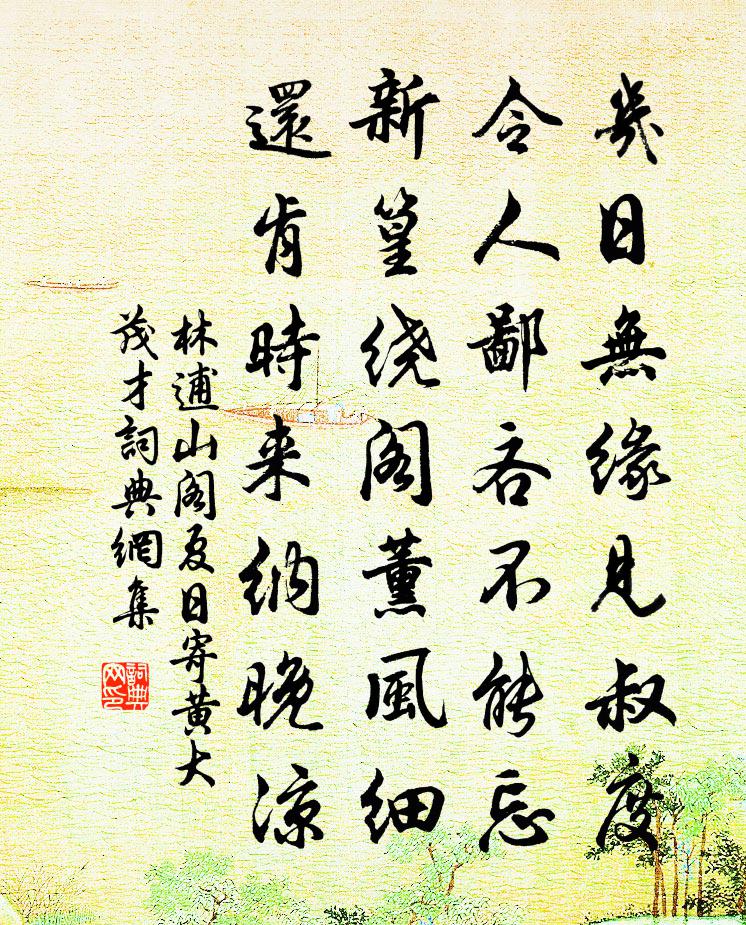 幾日無緣見叔度
令人鄙吝不能忘
新篁繞阁薰風細
還肯時来纳晚凉
林逋山阁夏日寄黄大
茂才詞典網集
詞典
网印